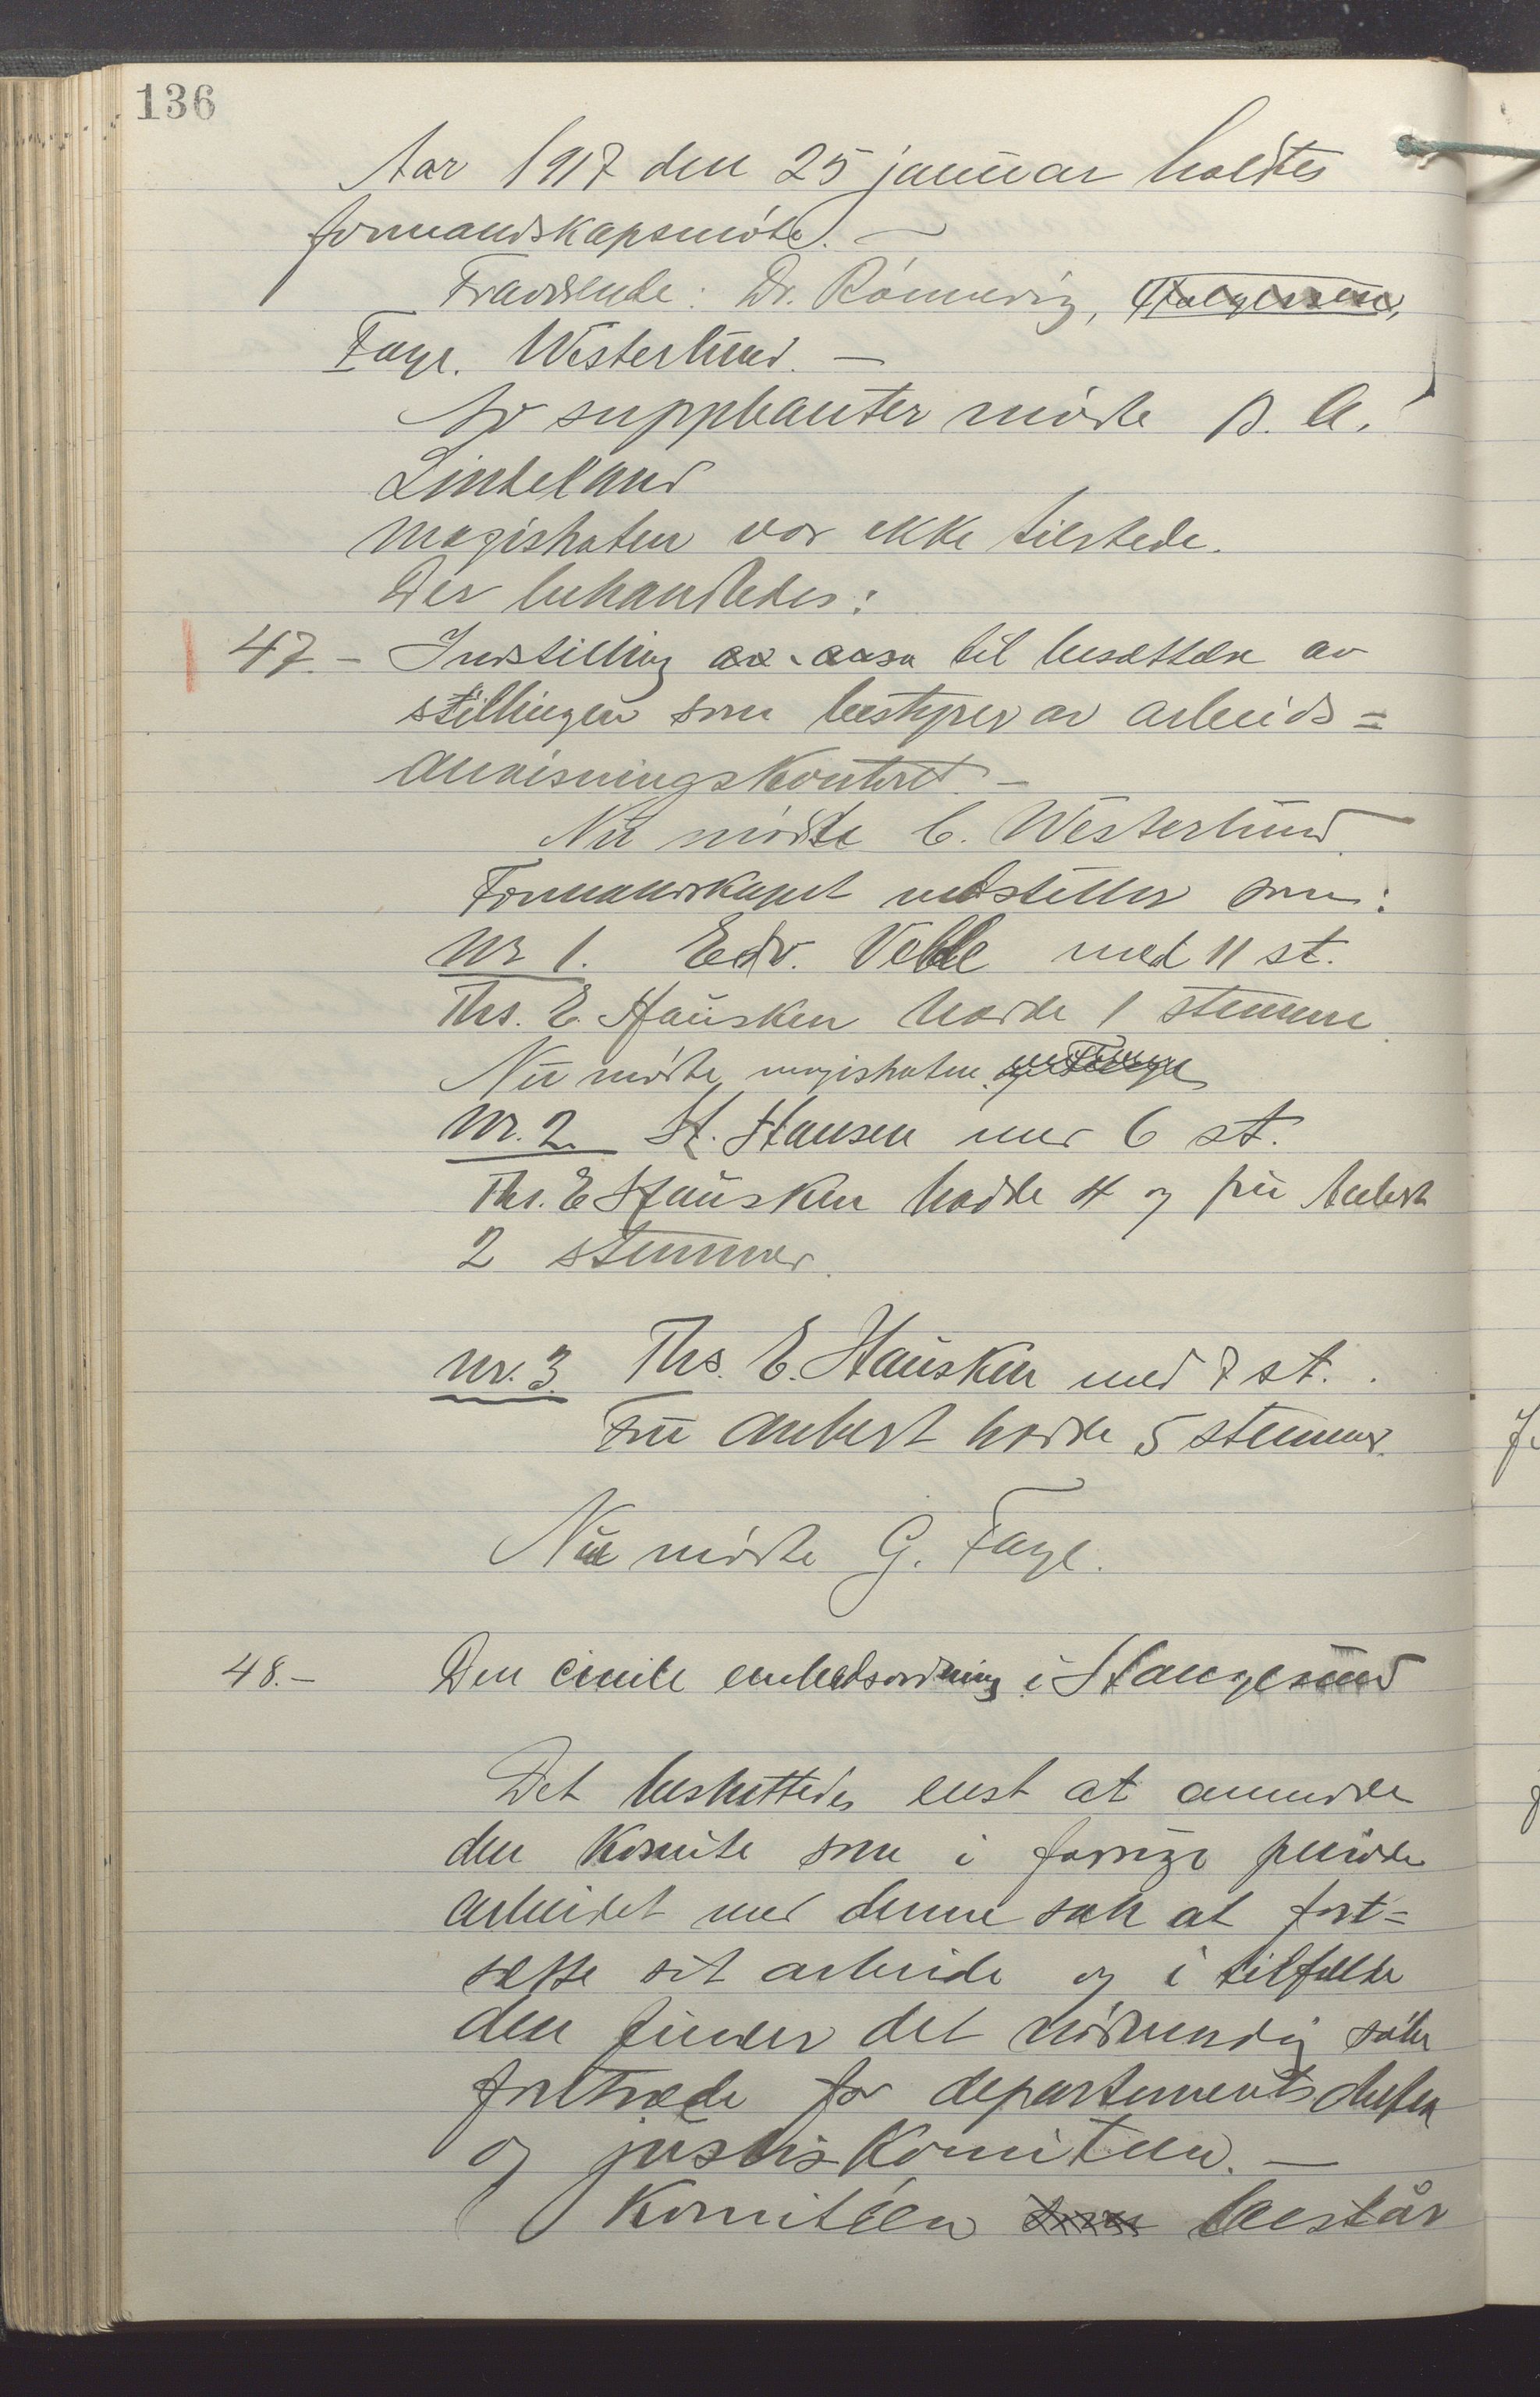 136
Aar 1917 den 25 januar holdtes
formandskapsmöte. —
Fraværende: Dr. Rönnevig,
Faye. Westerlund. —
Av suppleanter mödte B. A.
Lindeland
Magistraten var ikke tilstede.
Der behandledes:
47. – Indstilling til besættelse av
stillingen som bestyrer av arbeids=
anvisningskontoret. –
Nu mödte C. Westerlund.
Formandskapet indstiller som:
Nr 1. Edv. Velde med 11 st.
Ths. E. Hausken hadde 1 stemme
Nu mödte magistraten.
Nr. 2. H. Hansen med 6 st.
Ths. E Hausken hadde 4 og fru Aubert
2 stemmer.
Nr. 3. Ths. E. Hausken med 7 st.
Fru Aubert hadde 5 stemmer.
Nu mödte G. Faye.
48. – Den civile embedsordning i Haugesund
Det besluttedes enst at anmode
den Komite som i forrige periode
arbeidet med denne sak at fort=
sætte sit arbeide og i tilfælde
den finder det nödvendig söke
foretræde for departementschefen
og justiskomiteen. —
Komitéen består